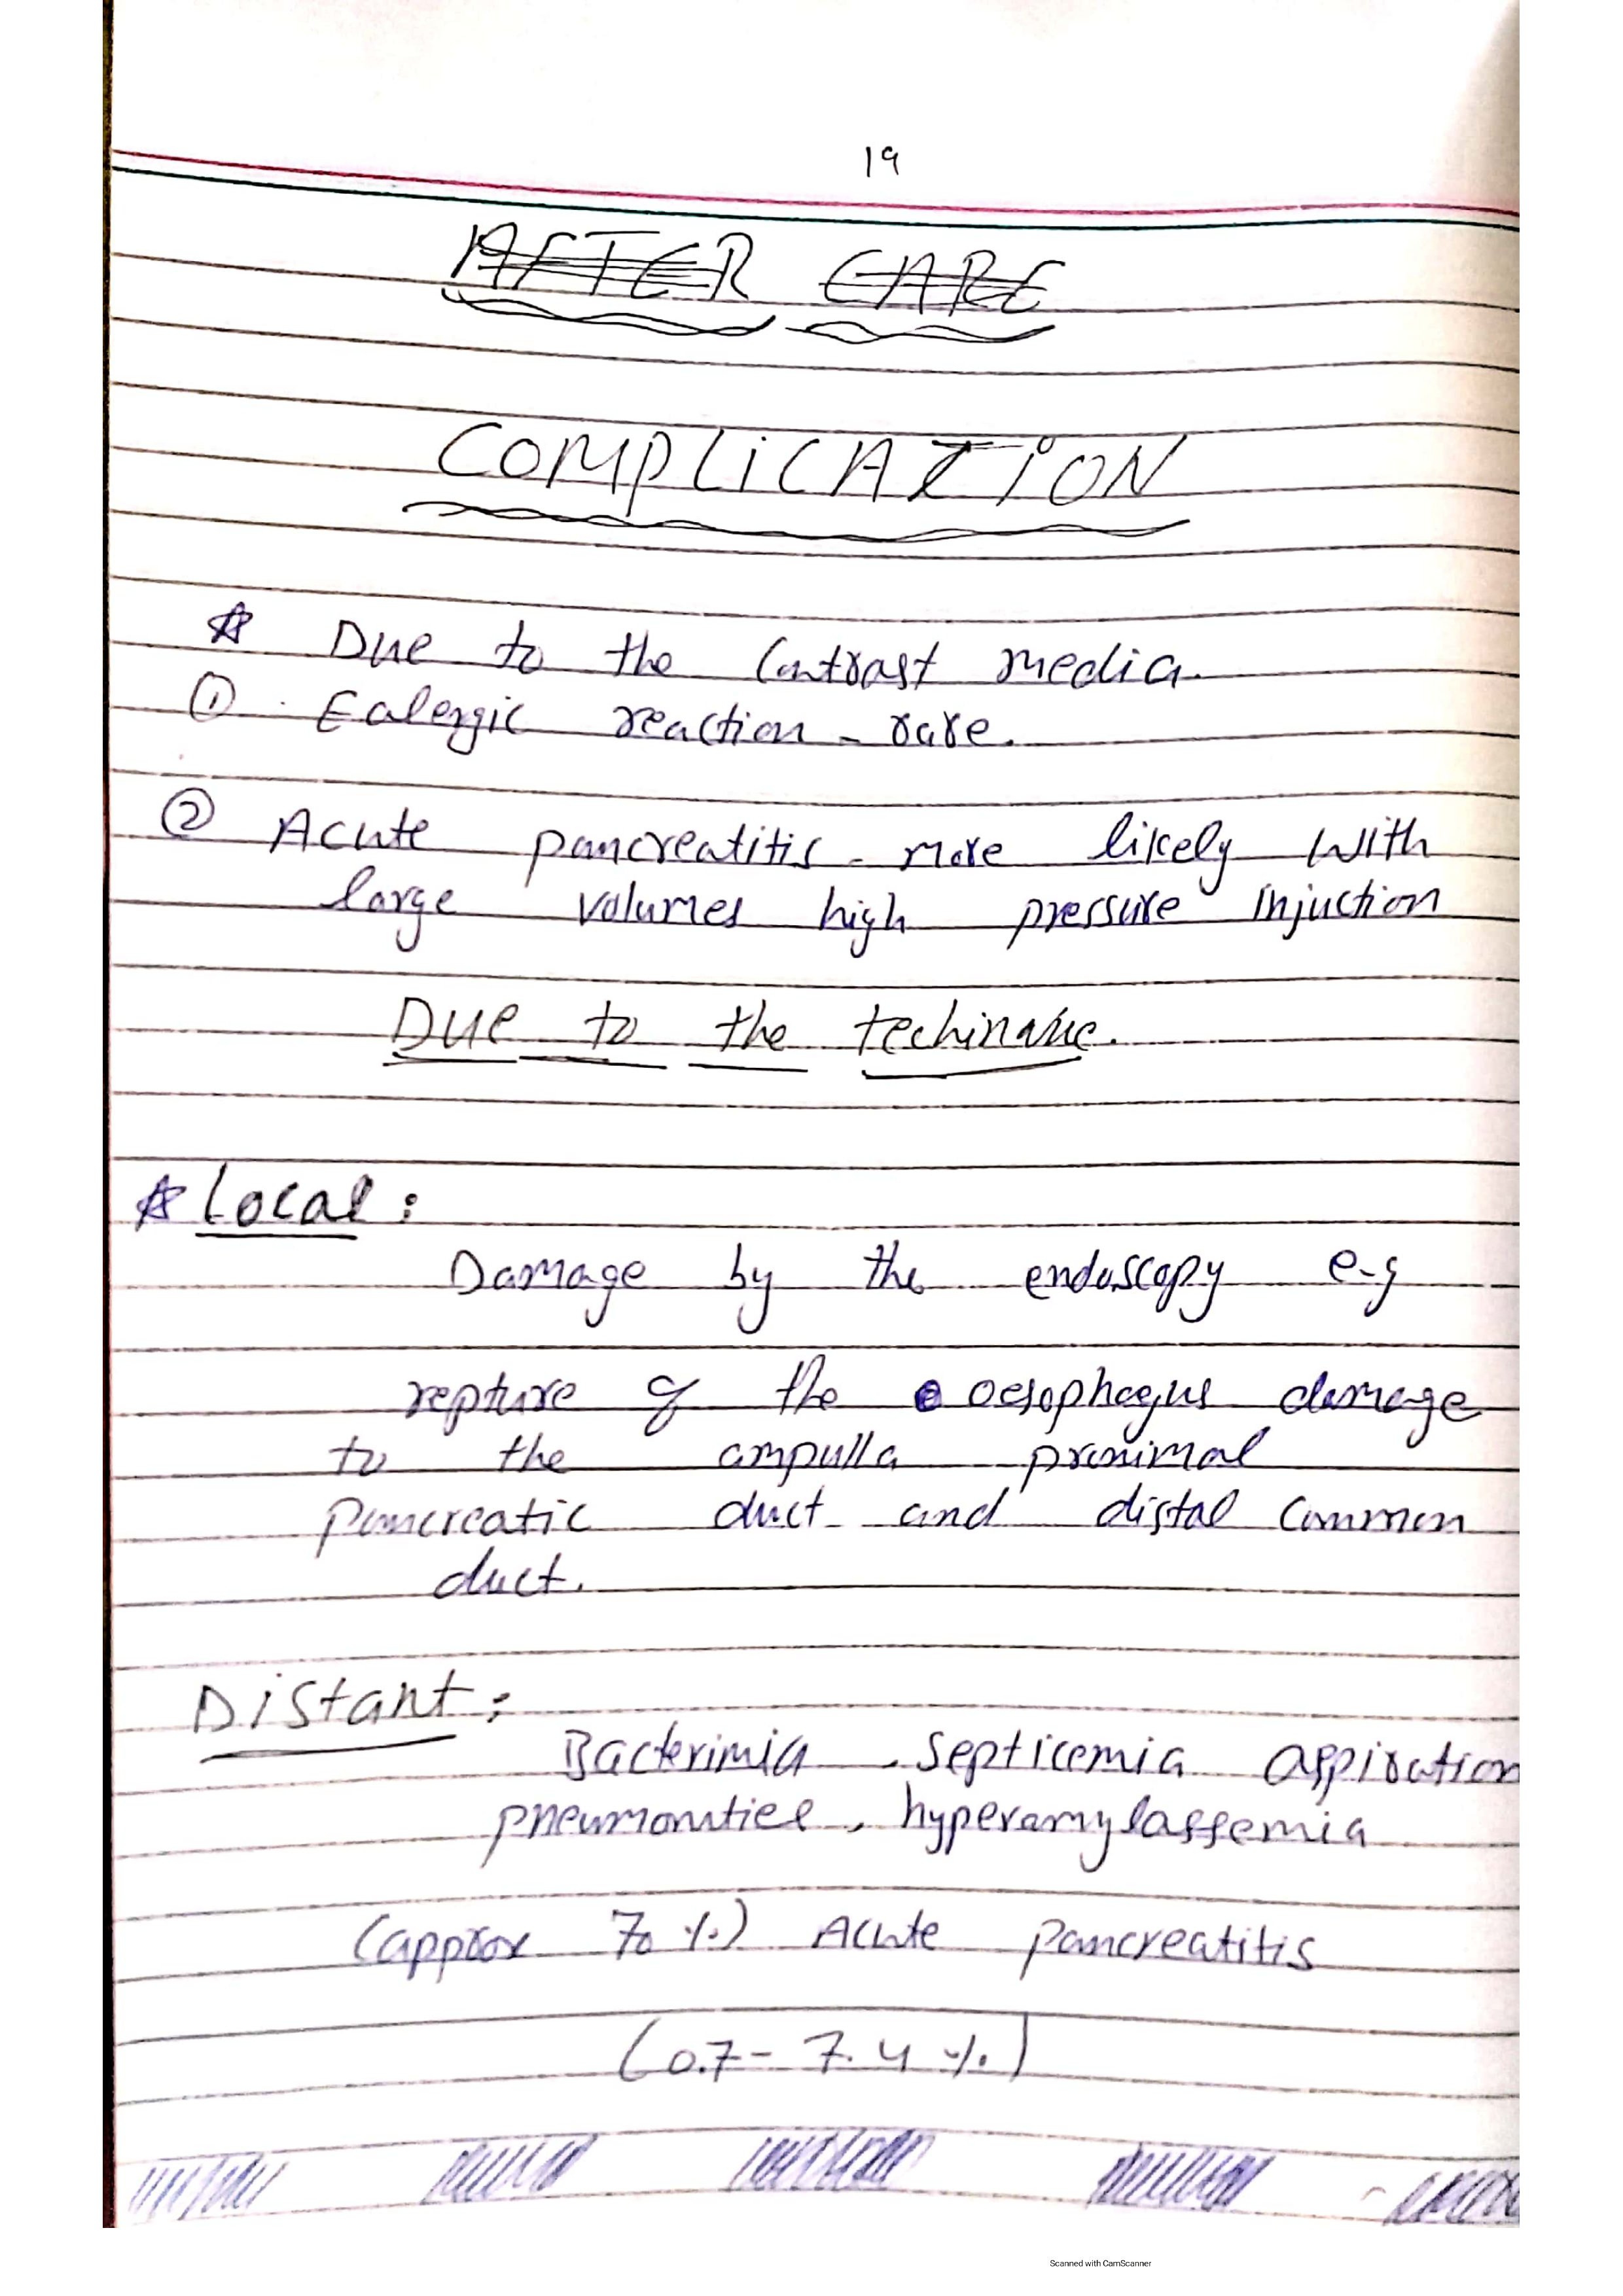 19
AFTER CARE
COMPLiCATiON
☆ Due to the Contrast media.
① Ealergic reaction - rare.
② Acute pancreatitis - more likely with
large volumes high pressure injuction
Due to the
☆ Local :
Damage by the endoscopy e-g
repture of the oesophagus damage
to the ampulla proximal
pancreatic duct and distal common
duct.
Distant :
Bacterimia , septicemia aspiration
hyperamylassemia
(approx 70 %) Acute pancreatitis
(0.7 - 7.4 %)
Scanned with CamScanner